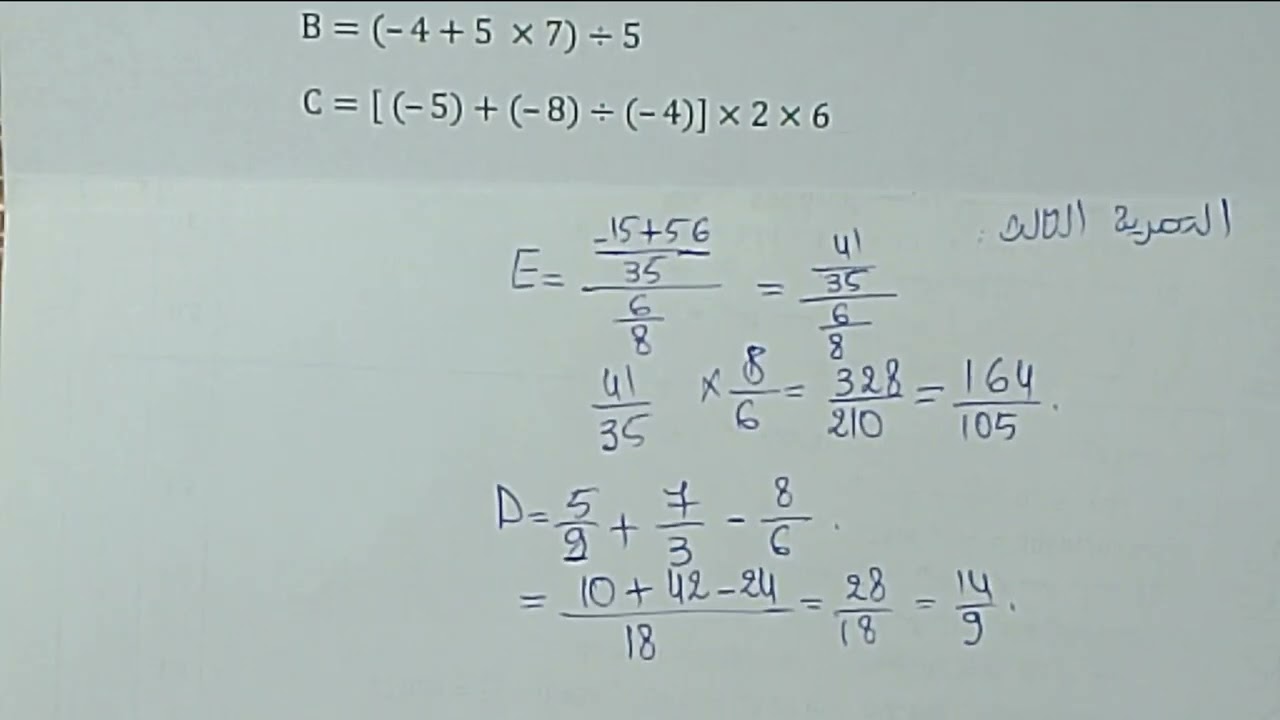 B = (– 4 + 5 × 7) ÷ 5
C = [ (– 5) + (– 8) ÷ (– 4)] × 2 × 6
التمرين الثالث :
E = ((-15+56)/35)/(6/8) = (41/35)/(6/8)
41/35 × 8/6 = 328/210 = 164/105 .
D = 5/9 + 7/3 - 8/6 .
= (10 + 42 - 24)/18 = 28/18 = 14/9 .